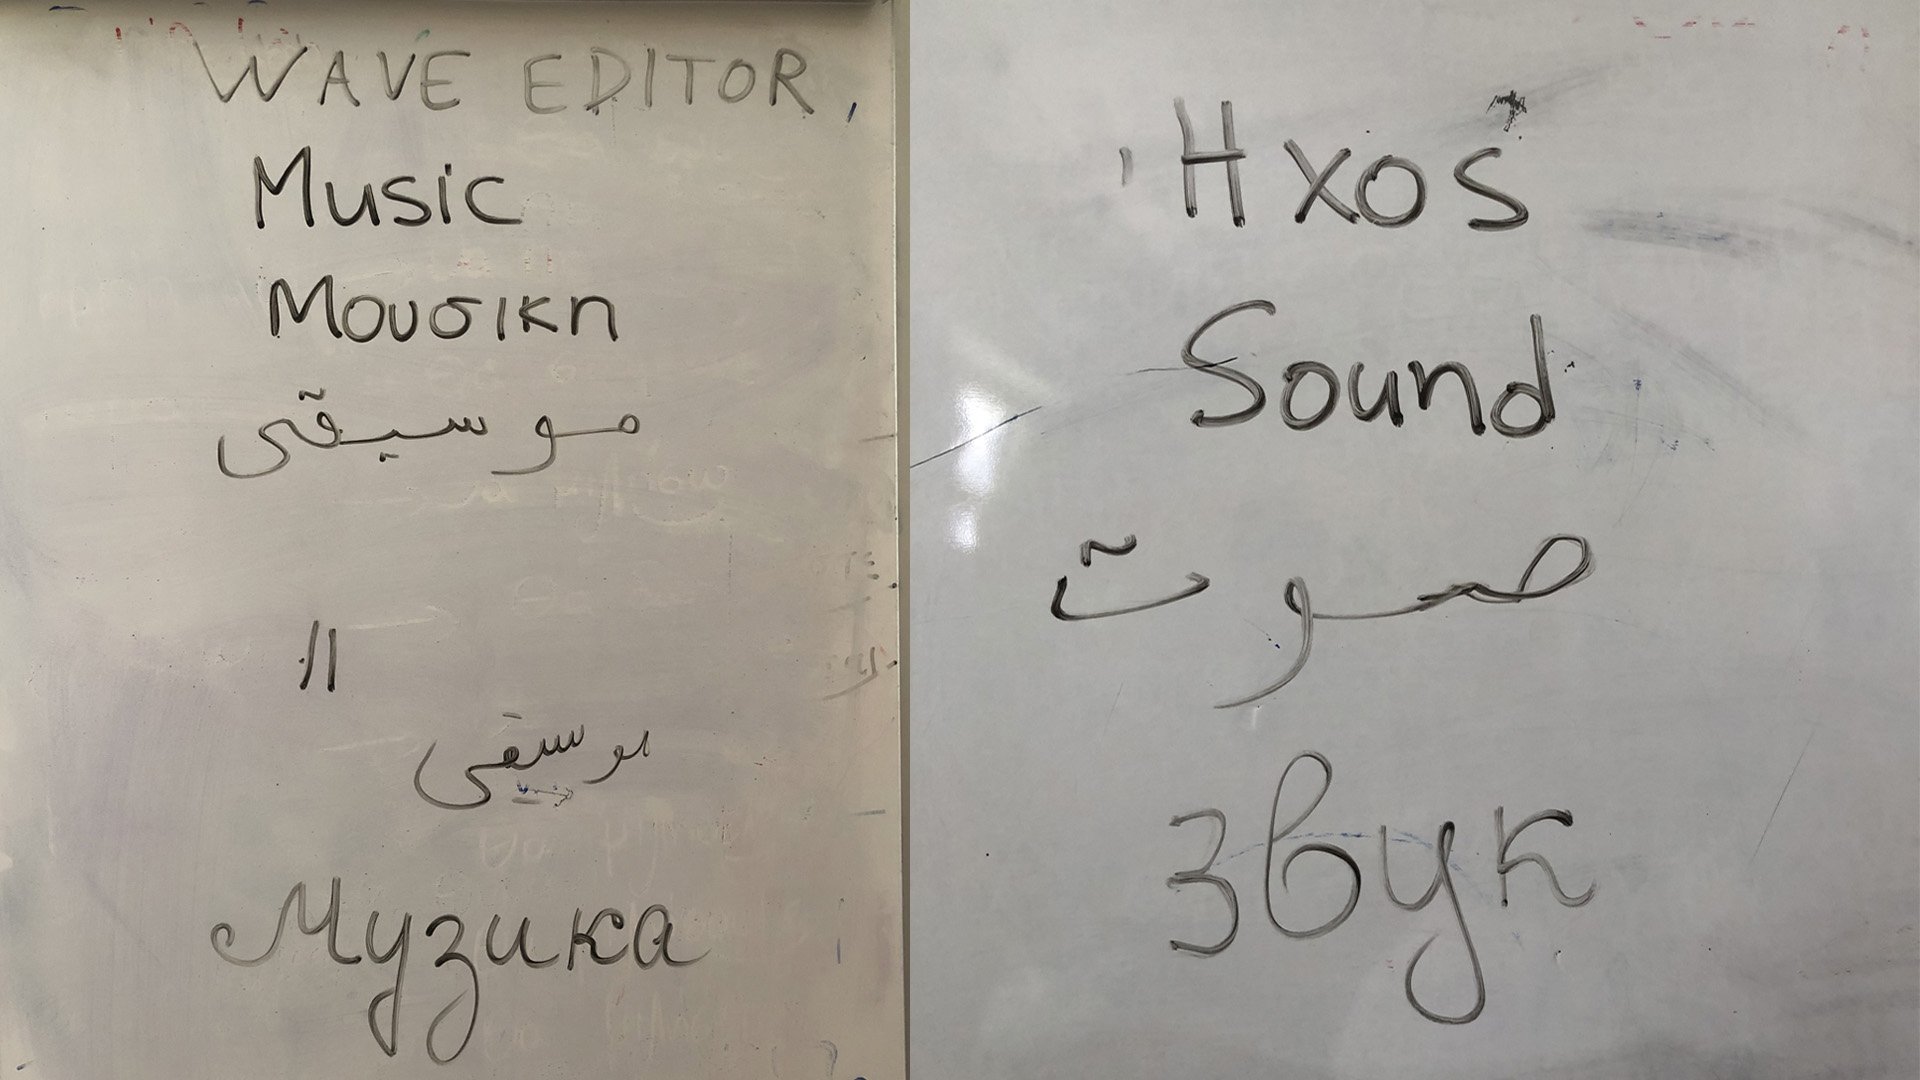 WAVE EDITOR
Music
Μουσικη
موسيقى
موسيقى
Музика
'Ηχοs
Sound
صوت
Звук